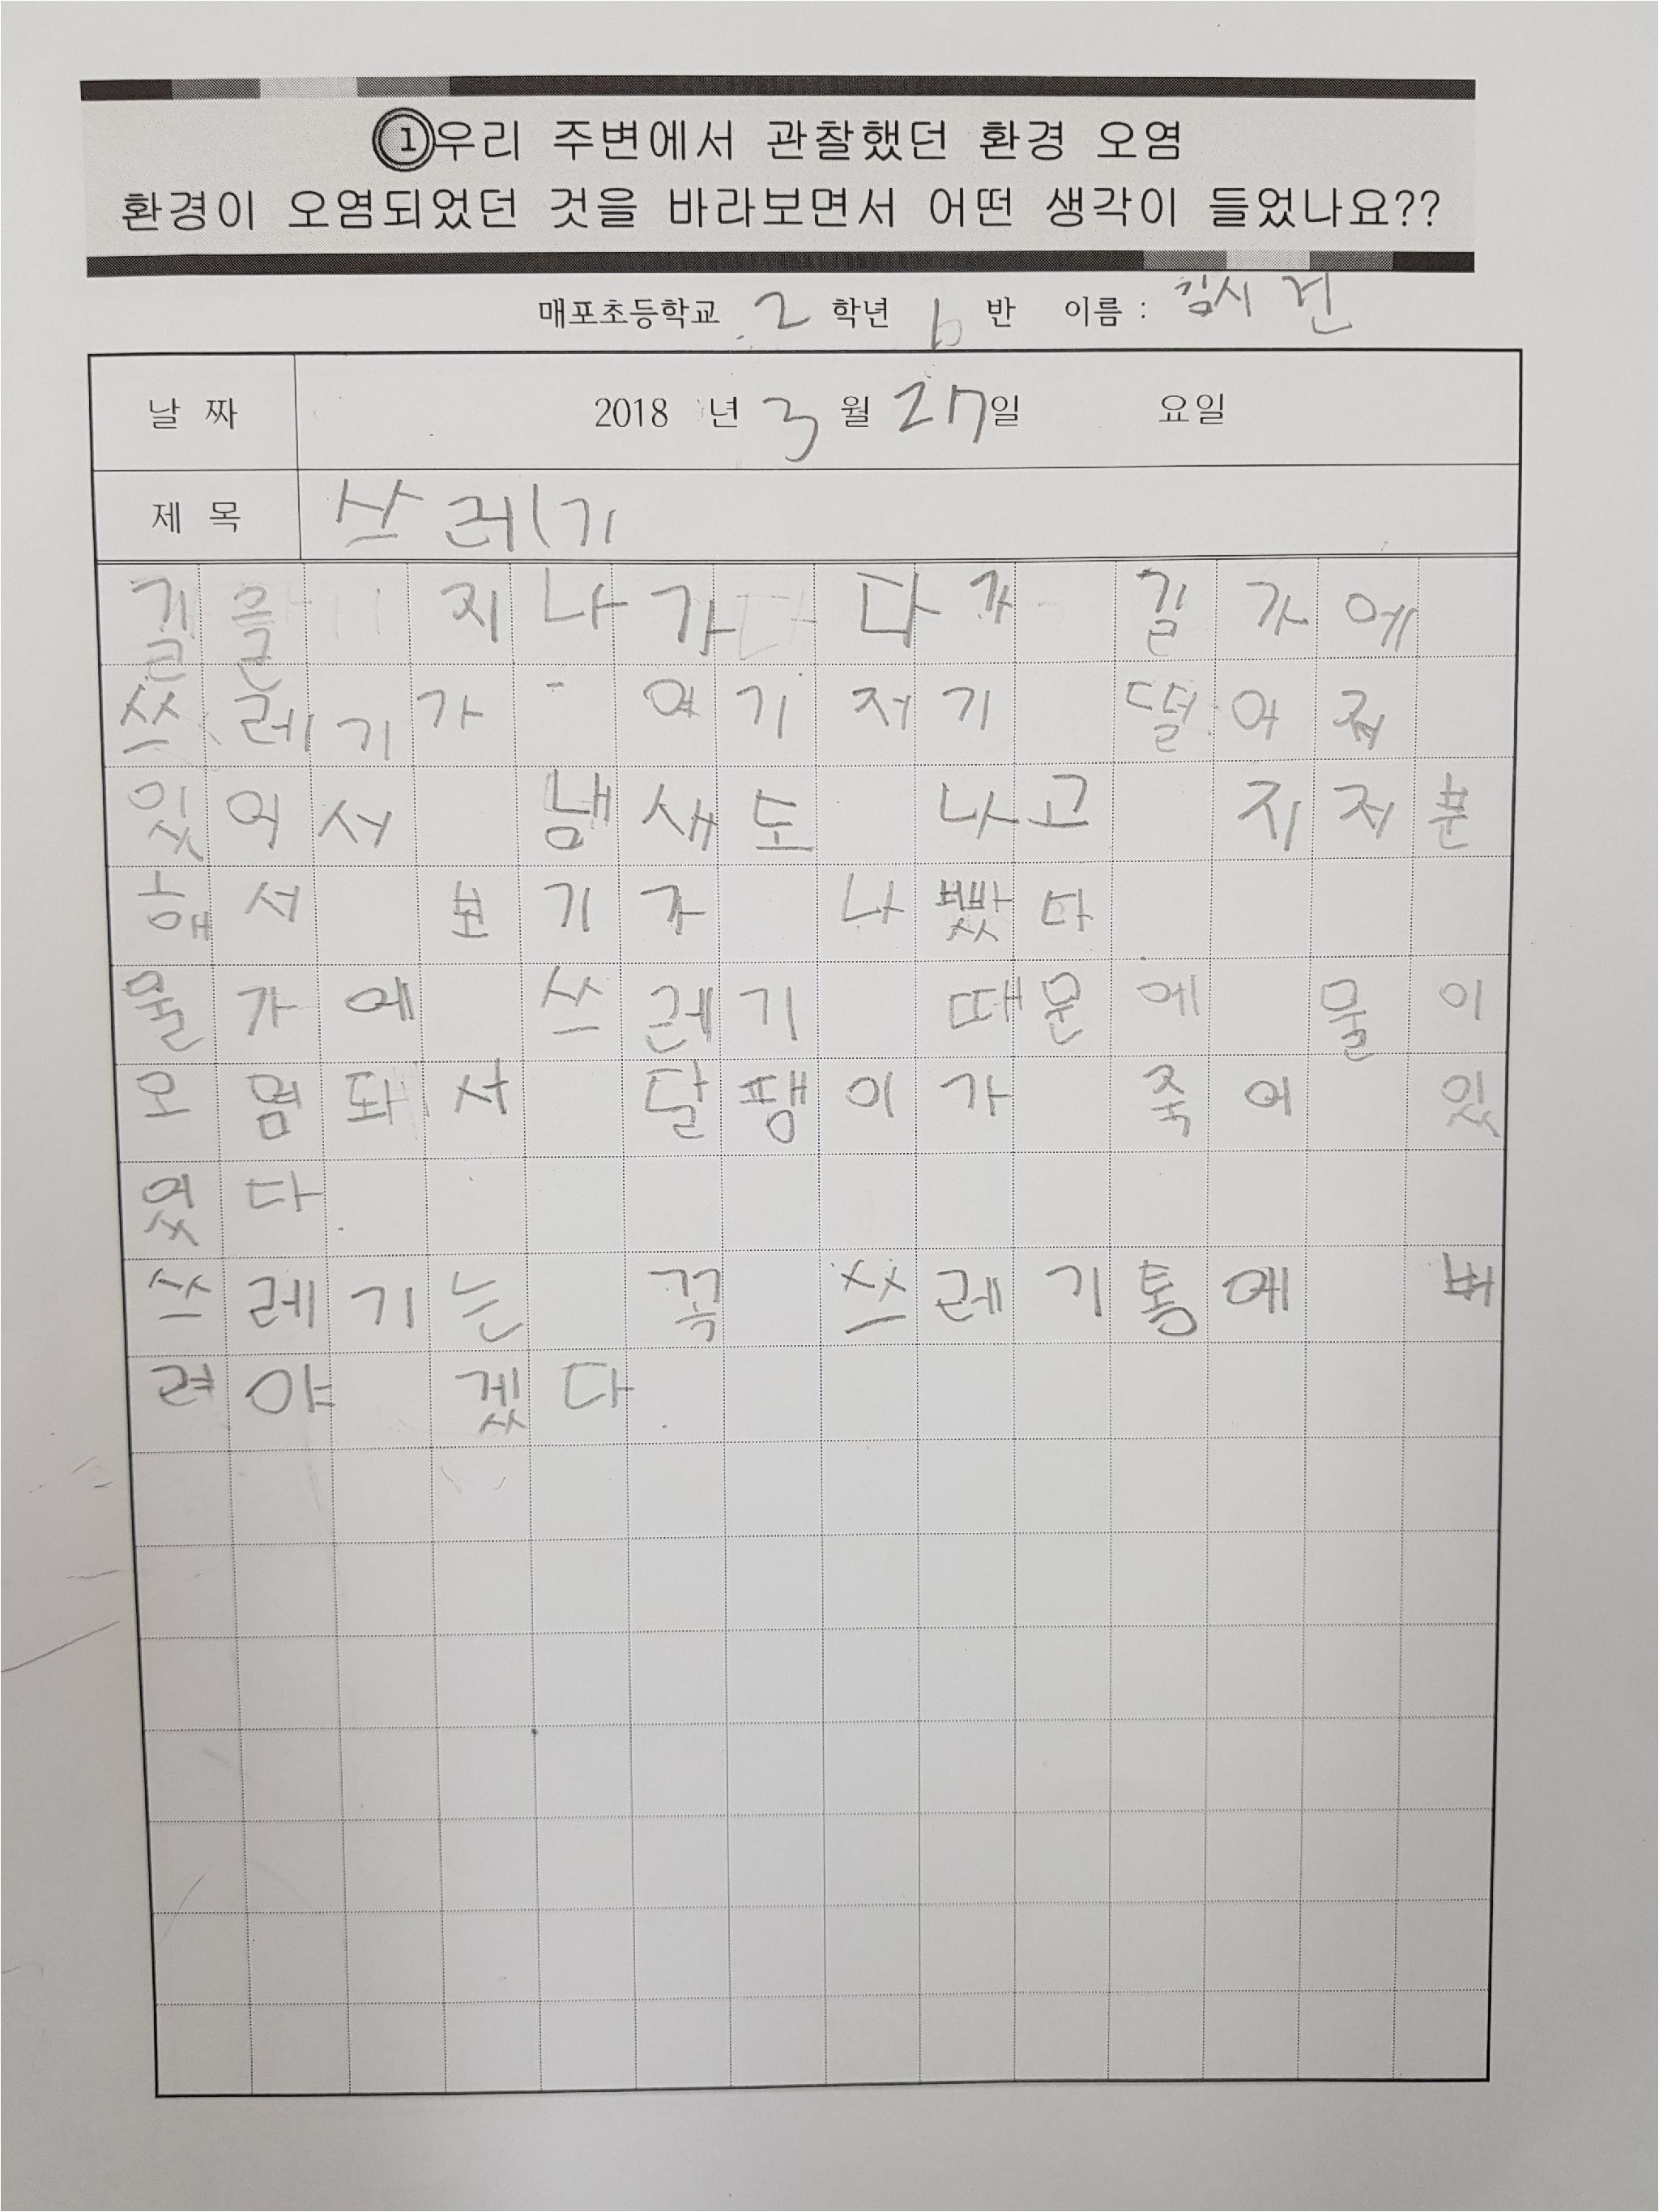 ①우리 주변에서 관찰했던 환경 오염
환경이 오염되었던 것을 바라보면서 어떤 생각이 들었나요??
매포초등학교 2 학년 6 반 이름 : 김시건
날 짜 2018 년 3 월 27일 요일
제 목 쓰레기
길을 지나가 다가 길가에
쓰레기가 여기저기 떨어져
있어서 냄새도 나고 지저분
해서 보기가 나빴다
물가에 쓰레기 때문에 물이
오염돠서 달팽이가 죽어 있
었다.
쓰레기는 꼭 쓰레기통에 버
려야 겠다.